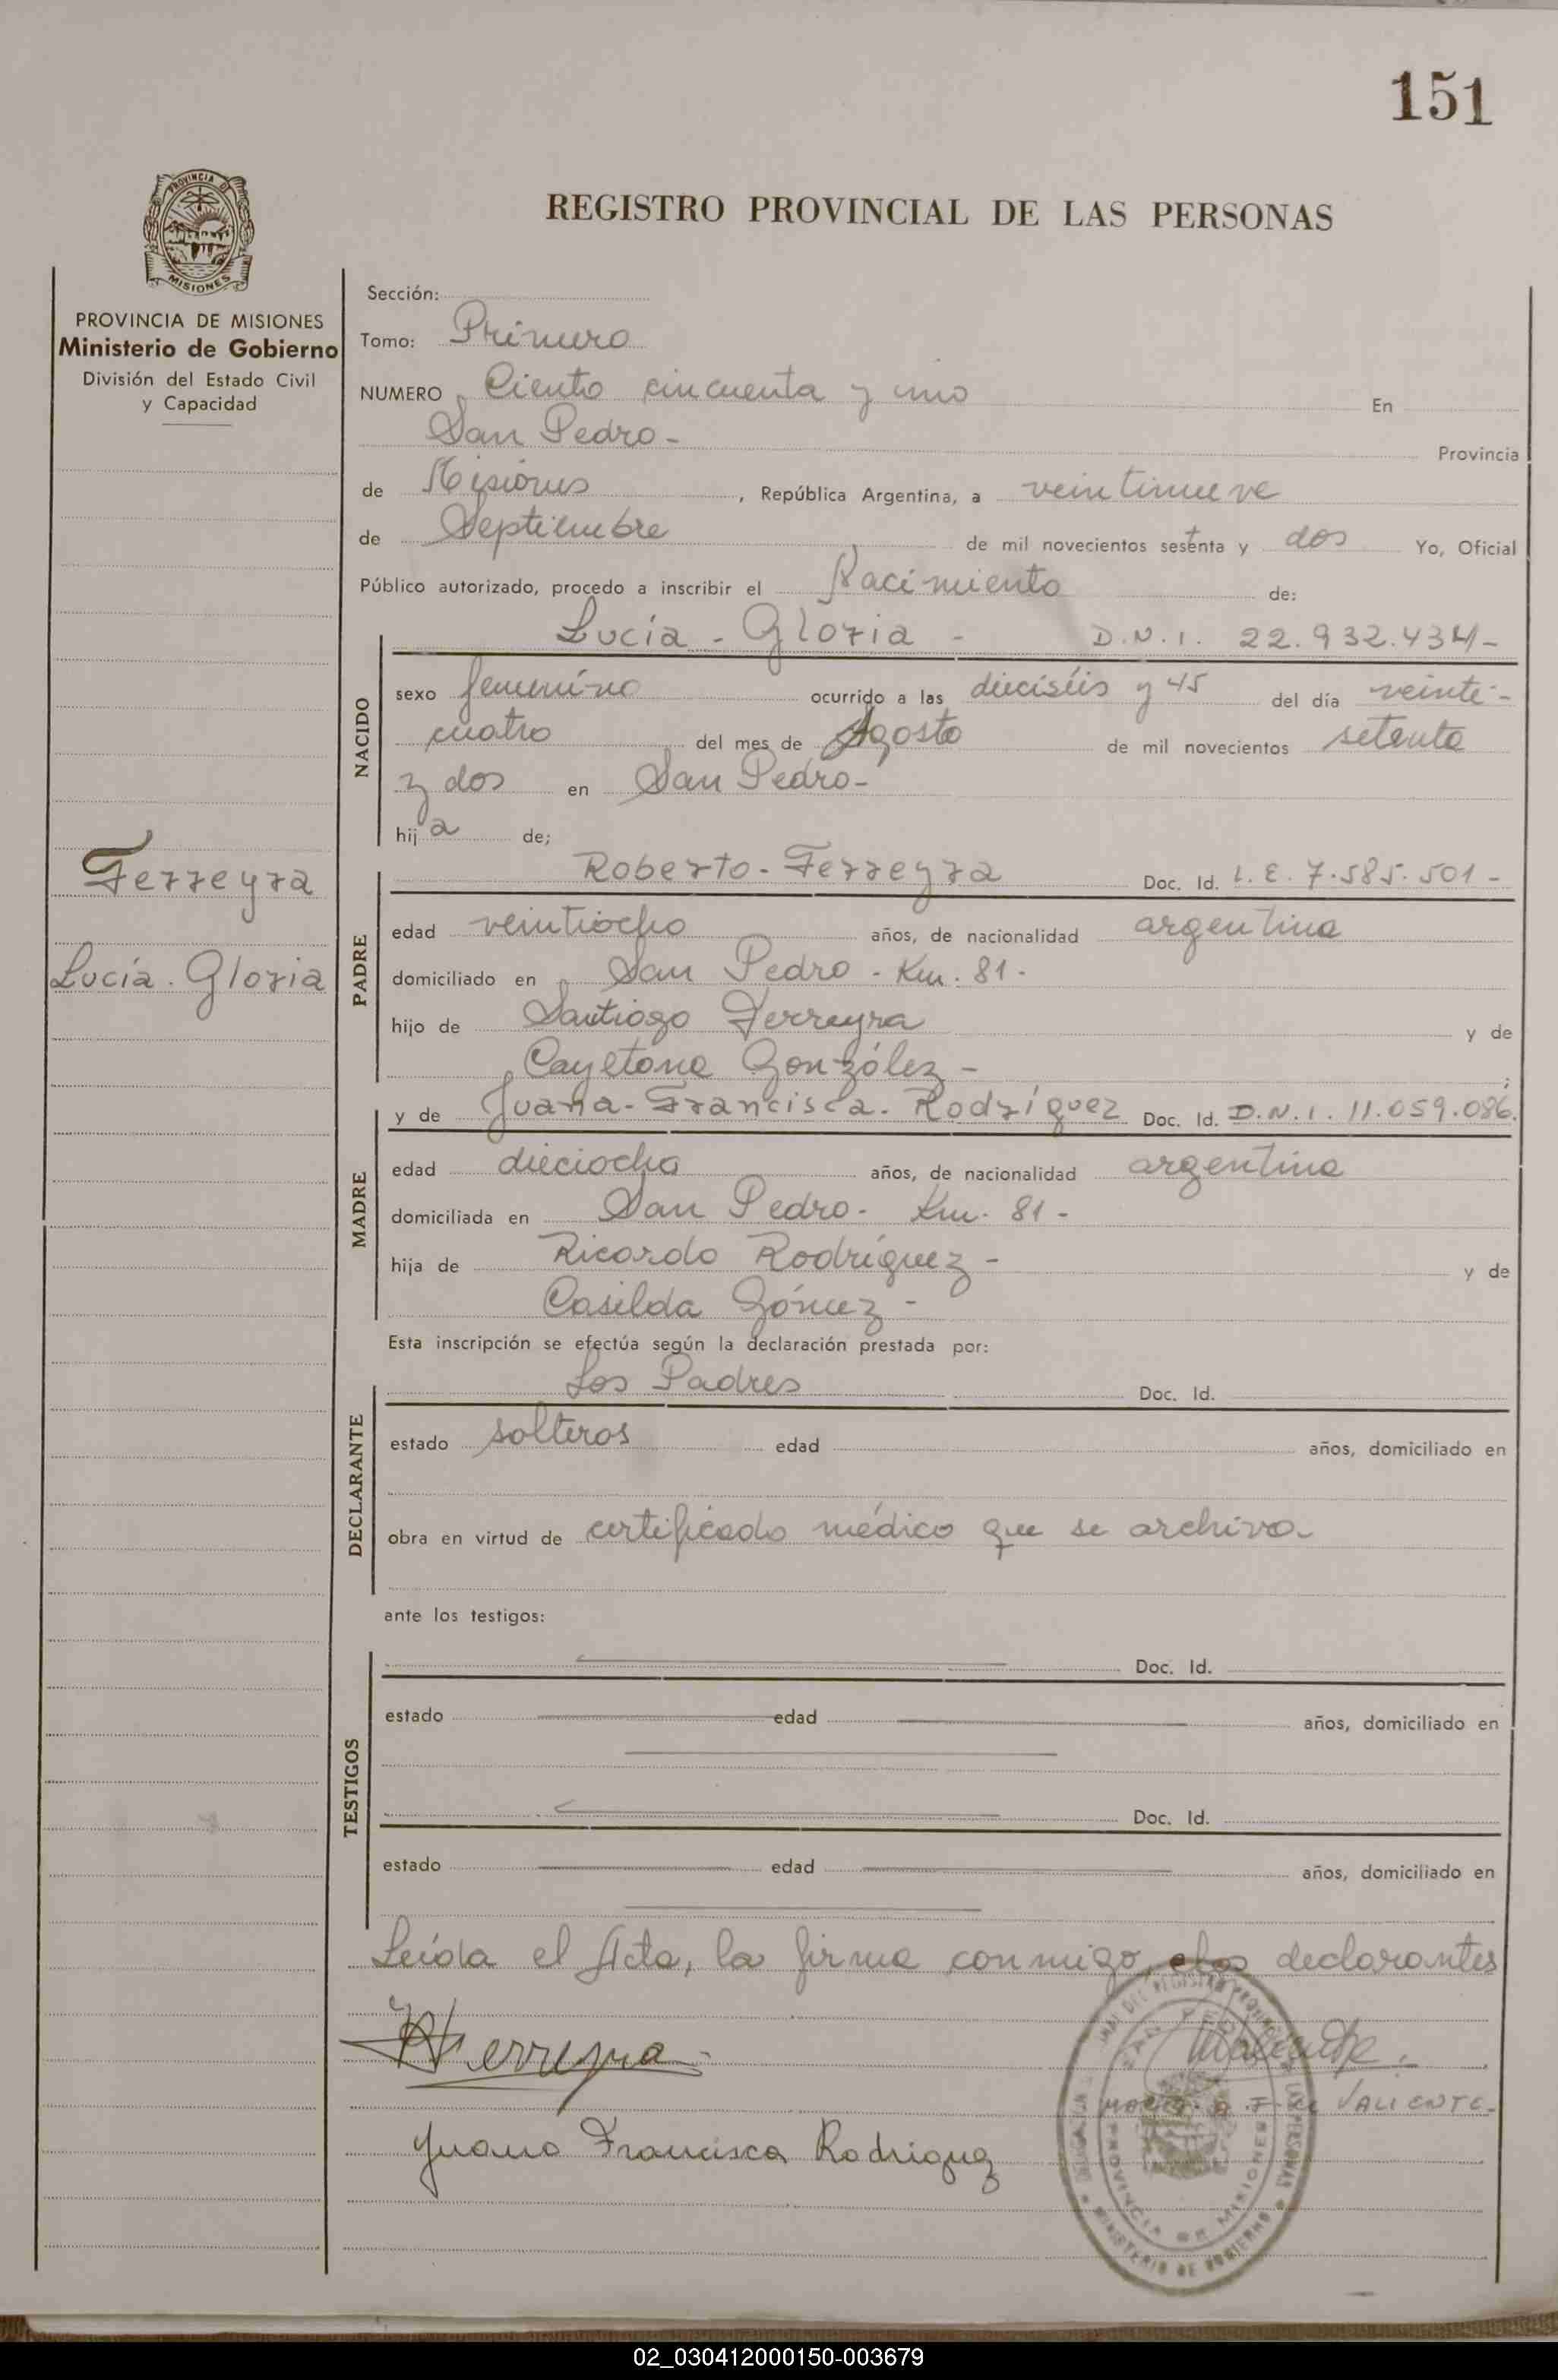 151
REGISTRO PROVINCIAL DE LAS PERSONAS
PROVINCIA DE
MISIONES
PROVINCIA DE MISIONES
Ministerio de Gobierno
División del Estado Civil
y Capacidad
Ferreyra
Lucía. Gloria
Sección:
Tomo: Primero
NUMERO Ciento cincuenta y uno En
San Pedro- Provincia
de Misiones, República Argentina, a veintinueve
de Septiembre de mil novecientos sesenta y dos Yo, Oficial
Público autorizado, procedo a inscribir el Nacimiento de:
NACIDO
Lucía - Gloria - D.N.I. 22.932.434-
sexo femenino ocurrido a las dieciséis y 45 del día veinti-
cuatro del mes de Agosto de mil novecientos setenta
y dos en San Pedro-
hija de;
PADRE
Roberto - Ferreyra Doc. Id. L.E. 7.585.501-
edad veintiocho años, de nacionalidad argentina
domiciliado en San Pedro - Km. 81-
hijo de Santiago Ferreyra y de
Cayetana González - ;
MADRE
y de Juana - Francisca. Rodríguez Doc. Id. D.N.I. 11.059.086.
edad dieciocho años, de nacionalidad argentina
domiciliada en San Pedro - Km. 81-
hija de Ricardo Rodríguez - y de
Casilda Gómez -
Esta inscripción se efectúa según la declaración prestada por:
DECLARANTE
Los Padres Doc. Id.
estado solteros edad años, domiciliado en
obra en virtud de certificado médico que se archiva
ante los testigos:
TESTIGOS
Doc. Id.
estado edad años, domiciliado en
Doc. Id.
estado edad años, domiciliado en
Leída el Acta, la firma conmigo, los declarantes
Ferreyra
VALIENTE-
Juana Francisca Rodriguez
PROVINCIA DE MISIONES
MINISTERIO DE GOBIERNO
02_030412000150-003679